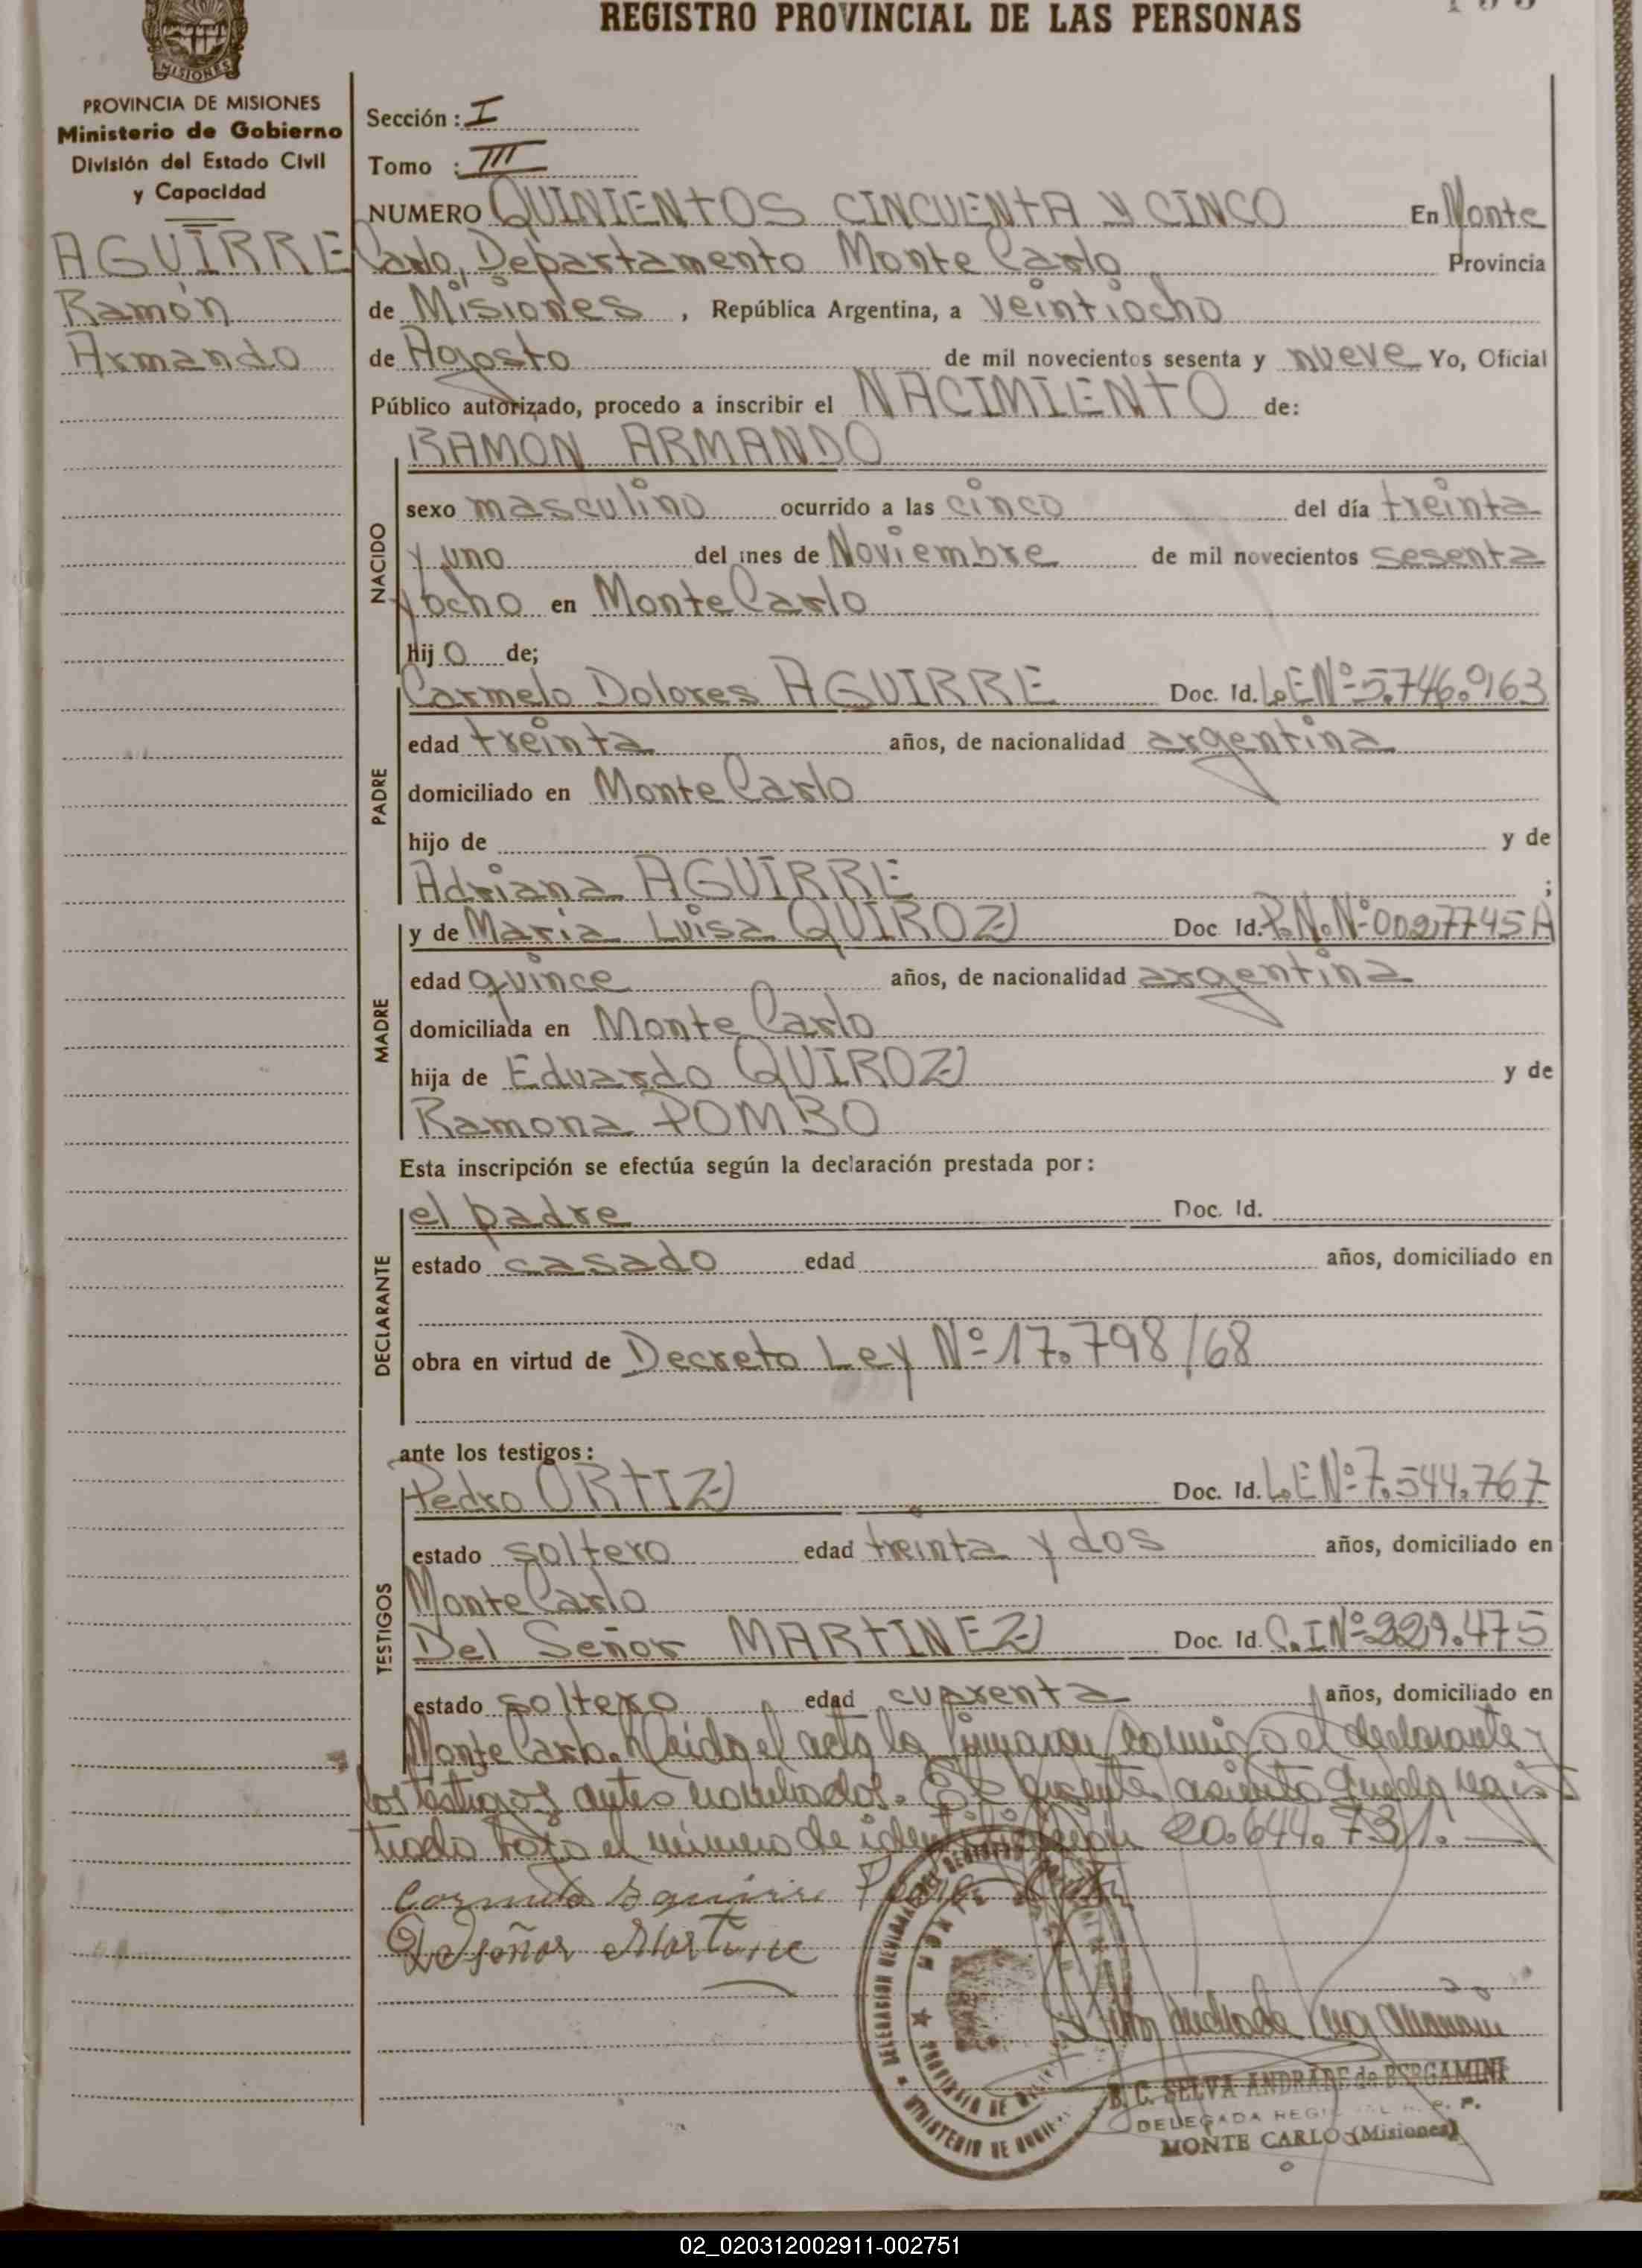 REGISTRO PROVINCIAL DE LAS PERSONAS
MISIONES
PROVINCIA DE MISIONES
Ministerio de Gobierno
División del Estado Civil
y Capacidad
AGUIRRE
Ramón
Armando
Sección : I
Tomo : III
NUMERO QUINIENTOS CINCUENTA Y CINCO En Monte
Carlo, Departamento Monte Carlo Provincia
de Misiones, República Argentina, a veintiocho
de Agosto de mil novecientos sesenta y nueve Yo, Oficial
Público autorizado, procedo a inscribir el NACIMIENTO de:
NACIDO
RAMON ARMANDO
sexo masculino ocurrido a las cinco del día treinta
y uno del mes de Noviembre de mil novecientos sesenta
y ocho en Monte Carlo
hijo de;
PADRE
Carmelo Dolores AGUIRRE Doc. Id. L.E Nº 5.746.963
edad treinta años, de nacionalidad argentina
domiciliado en Monte Carlo
hijo de y de
Adriana AGUIRRE ;
MADRE
y de Maria Luisa QUIROZ Doc. Id. P.N.Nº 0027745A
edad quince años, de nacionalidad argentina
domiciliada en Monte Carlo
hija de Eduardo QUIROZ y de
Ramona POMBO
Esta inscripción se efectúa según la declaración prestada por:
DECLARANTE
el padre Doc. Id.
estado casado edad años, domiciliado en
obra en virtud de Decreto Ley Nº 17.798/68
ante los testigos:
TESTIGOS
Pedro ORTIZ Doc. Id. L.E Nº 7.544.767
estado soltero edad treinta y dos años, domiciliado en
Monte Carlo
Del Señor MARTINEZ Doc. Id. C.I Nº 229.475
estado soltero edad cuarenta años, domiciliado en
Monte Carlo. Leida el acta la firmaron conmigo el declarante y
los testigos antes nombrados. El presente asiento queda regis
trado bajo el número de identificación 20.644.731.
Carmelo Aguirre
Del señor Martine
B. C. SELVA ANDRADE de BERGAMINI
DELEGADA REGIONAL R. P. P.
MONTE CARLO (Misiones)
02_020312002911-002751